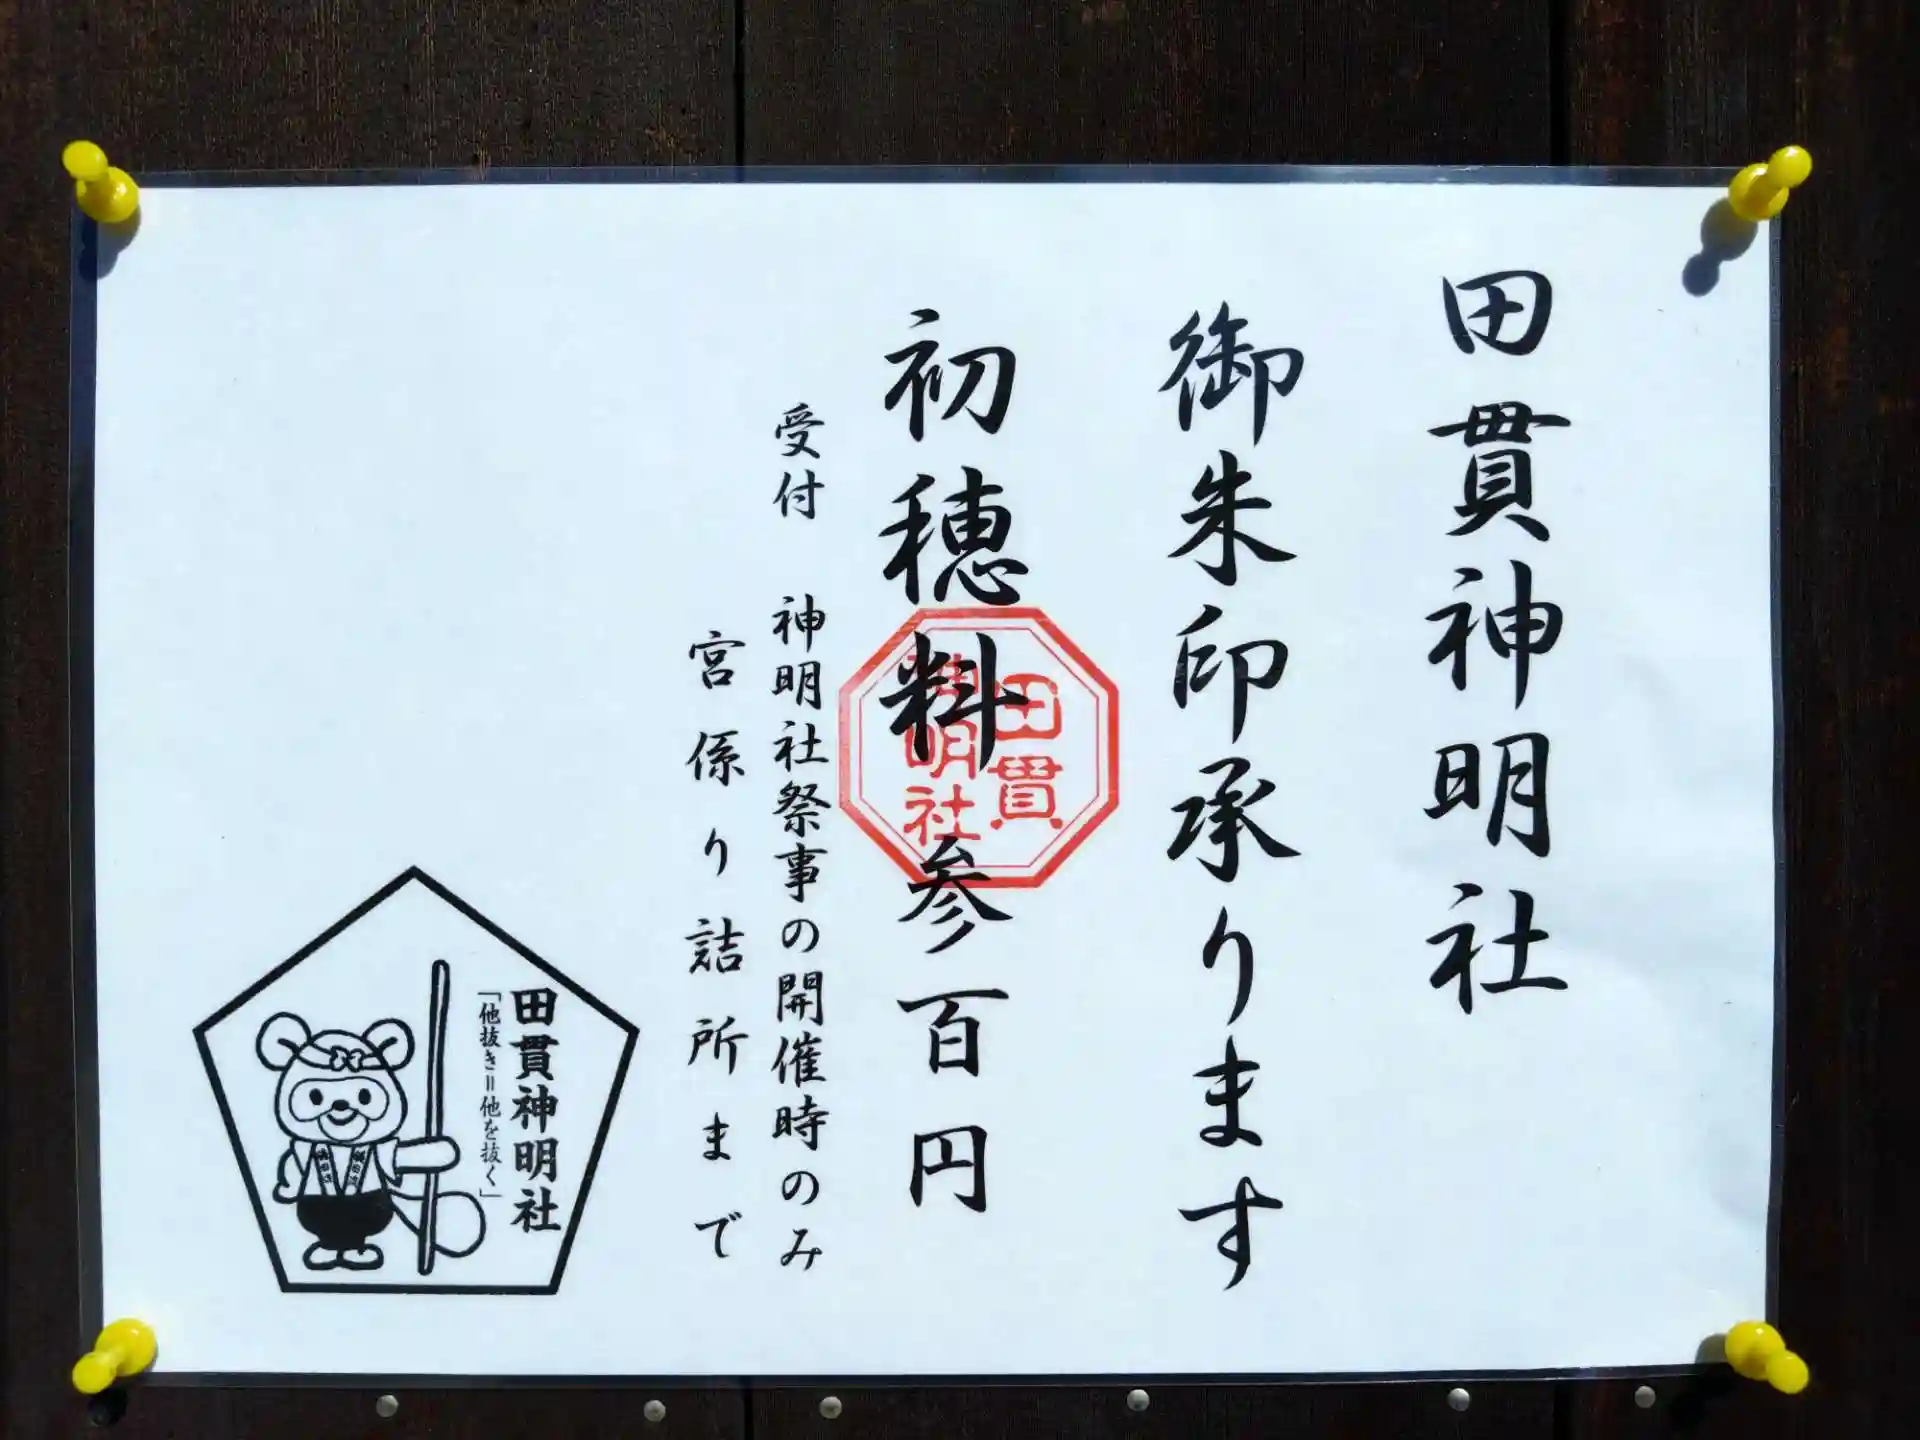 田貫神明社
御朱印承ります
初穂料参百円
田貫
神明社
受付 神明社祭事の開催時のみ
宮係り詰所まで
田貫神明社
「他抜き=他を抜く」